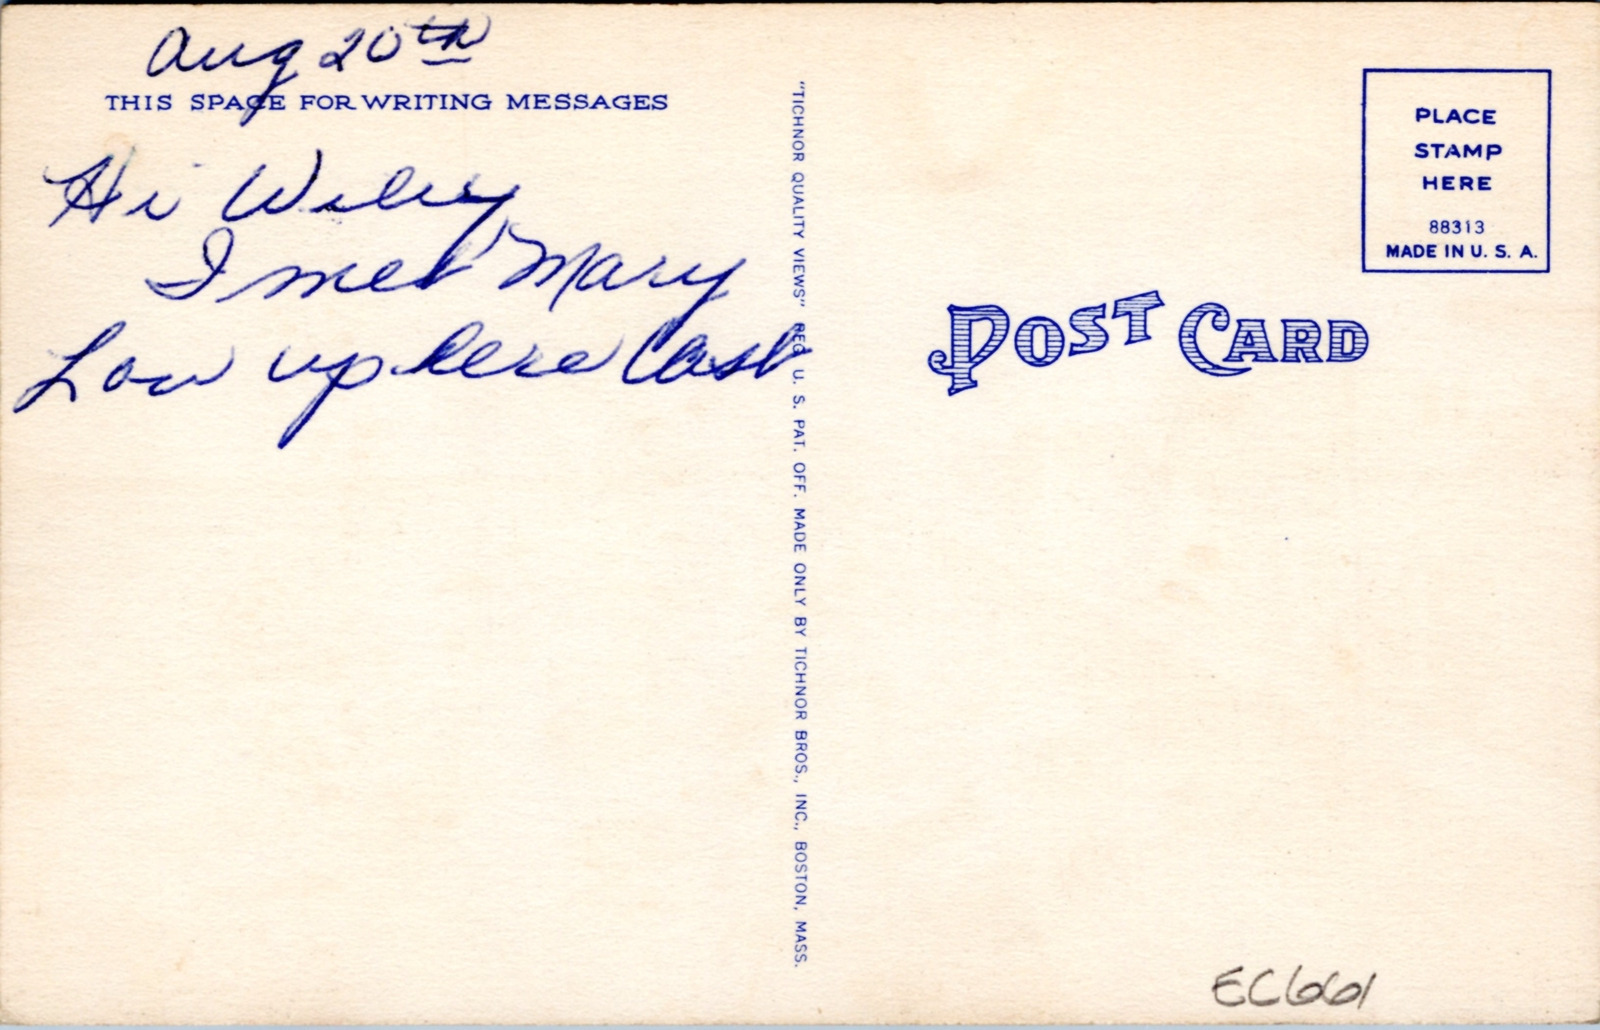 Aug 20th
THIS SPACE FOR WRITING MESSAGES
Hi Wiley
I met Mary
Low up here Last
"TICHNOR QUALITY VIEWS" REG. U. S. PAT. OFF. MADE ONLY BY TICHNOR BROS., INC., BOSTON, MASS.
PLACE
STAMP
HERE
88313
MADE IN U. S. A.
POST CARD
EC661